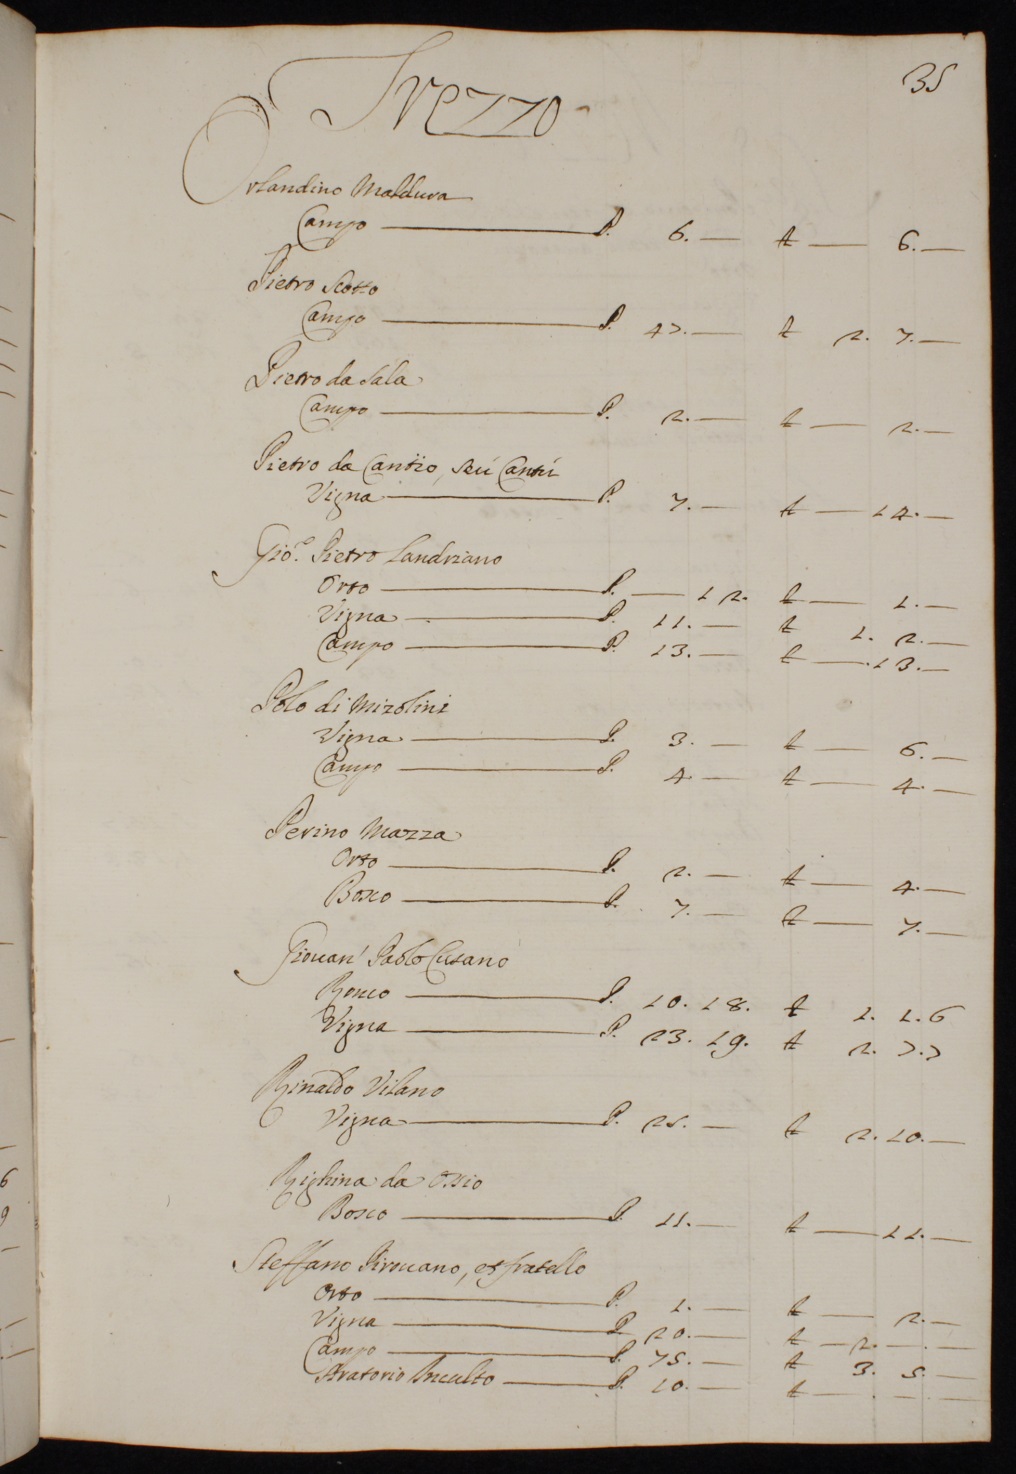 35
Trezzo
Orlandino Maldura
Campo — P. 6. — £ — 6. —
Pietro Scotto
Campo — P. 47. — £ 2. 7. —
Pietro da Sala
Campo — P. 2. — £ — 2. —
Pietro da Cantio, seu Cantù
Vigna — P. 7. — £ — 14. —
Gio. Pietro Landriano
Orto — P. — 12. £ — 1. —
Vigna — P. 11. — £ 1. 2. —
Campo — P. 13. — £ — 13. —
Polo di Mizolini
Vigna — P. 3. — £ — 6. —
Campo — P. 4. — £ — 4. —
Perino Mazza
Orto — P. 2. — £ — 4. —
Bosco — P. 7. — £ — 7. —
Giouan' Paolo Cusano
Ronco — P. 10. 18. £ 1. 1. 6
Vigna — P. 23. 19. £ 2. 7. 7
Rinaldo Vilano
Vigna — P. 25. — £ 2. 10. —
Righina da Ossio
Bosco — P. 11. — £ — 11. —
Steffano Pirouano, et fratello
Orto — P. 1. — £ — 2. —
Vigna — P. 20. — £ — 2. — . —
Campo — P. 75. — £ 3. 5. —
Aratorio Inculto — P. 10. — £ — . — . —
6
9